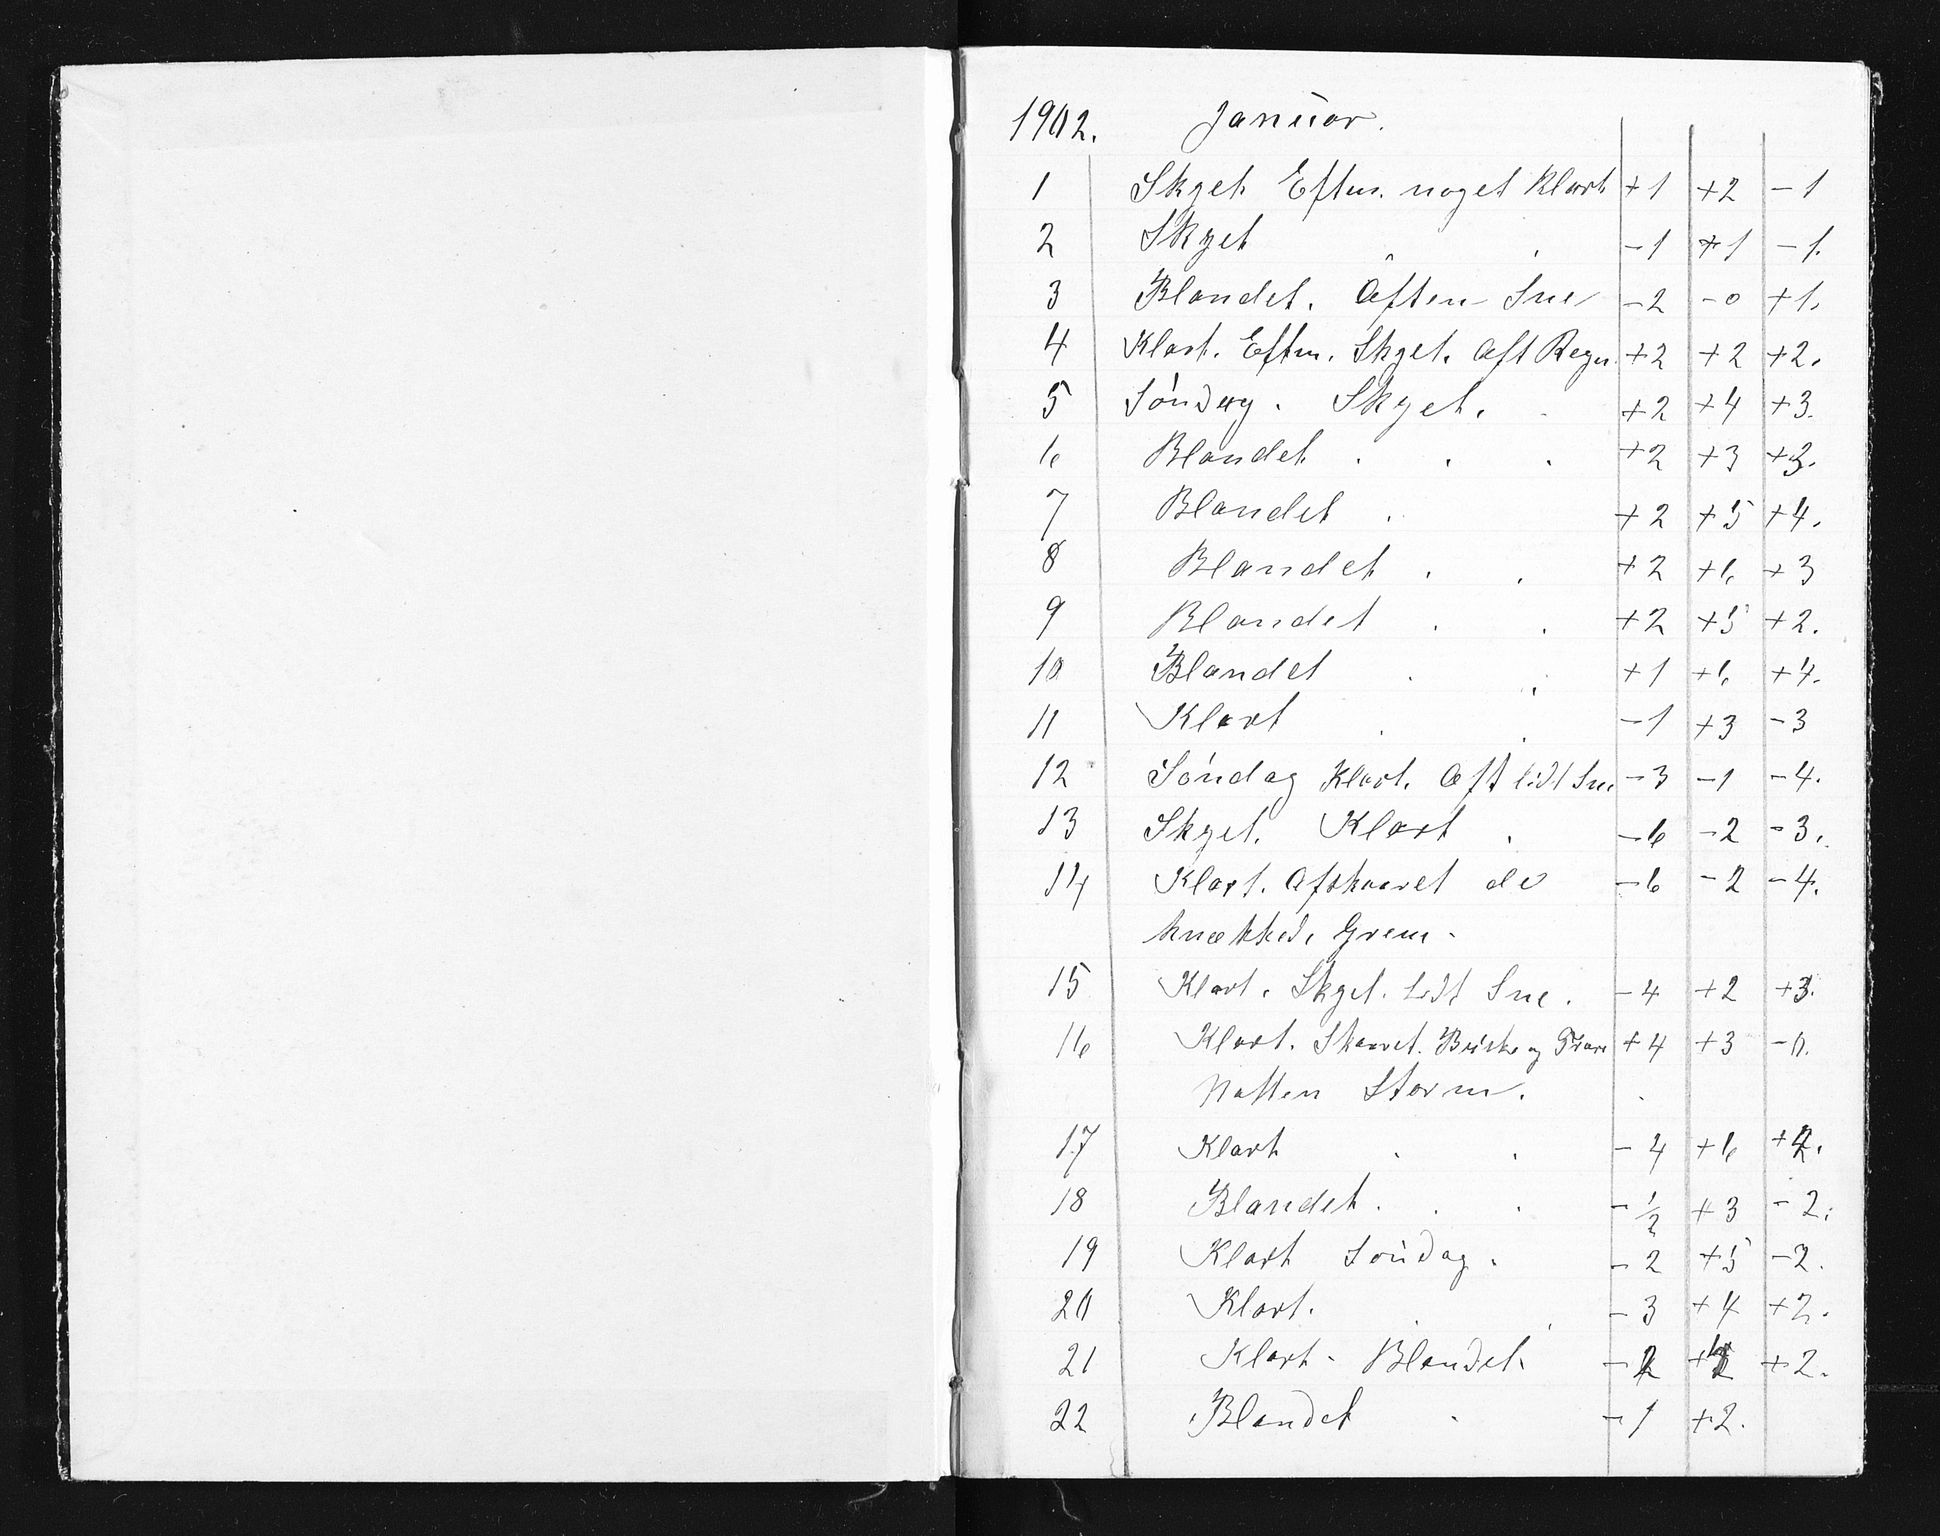 1902. Januar.
1 Skyet Eftm. noget Klart +1 +2 -1
2 Skyet -1 +1 -1.
3 Blandet. Aften Sne -2 -0 +1.
4 Klart. Eftm. Skyet. Aft Regn. +2 +2 +2.
5 Søndag. Skyet. +2 +4 +3.
6 Blandet +2 +3 +3.
7 Blandet +2 +5 +4.
8 Blandet +2 +6 +3
9 Blandet +2 +5 +2.
10 Blandet +1 +6 +4.
11 Klart -1 +3 -3
12 Søndag Klart. Aft lidt Sne. -3 -1 -4.
13 Skyet. Klart -6 -2 -3.
14 Klart. Afskaaret de -6 -2 -4.
knækkede Grene.
15 Klart. Skyet. Lidt Sne. -4 +2 +3.
16 Klart. Skaaret. Buske og +4 +3 -0.
Natten Storm.
17 Klart -4 +6
18 Blandet. -½ +3 -2.
19 Klart Søndag. -2 +5 -2.
20 Klart. -3 +4 +2.
21 Klart - Blandet. -2 +2.
22 Blandet -1 +2.